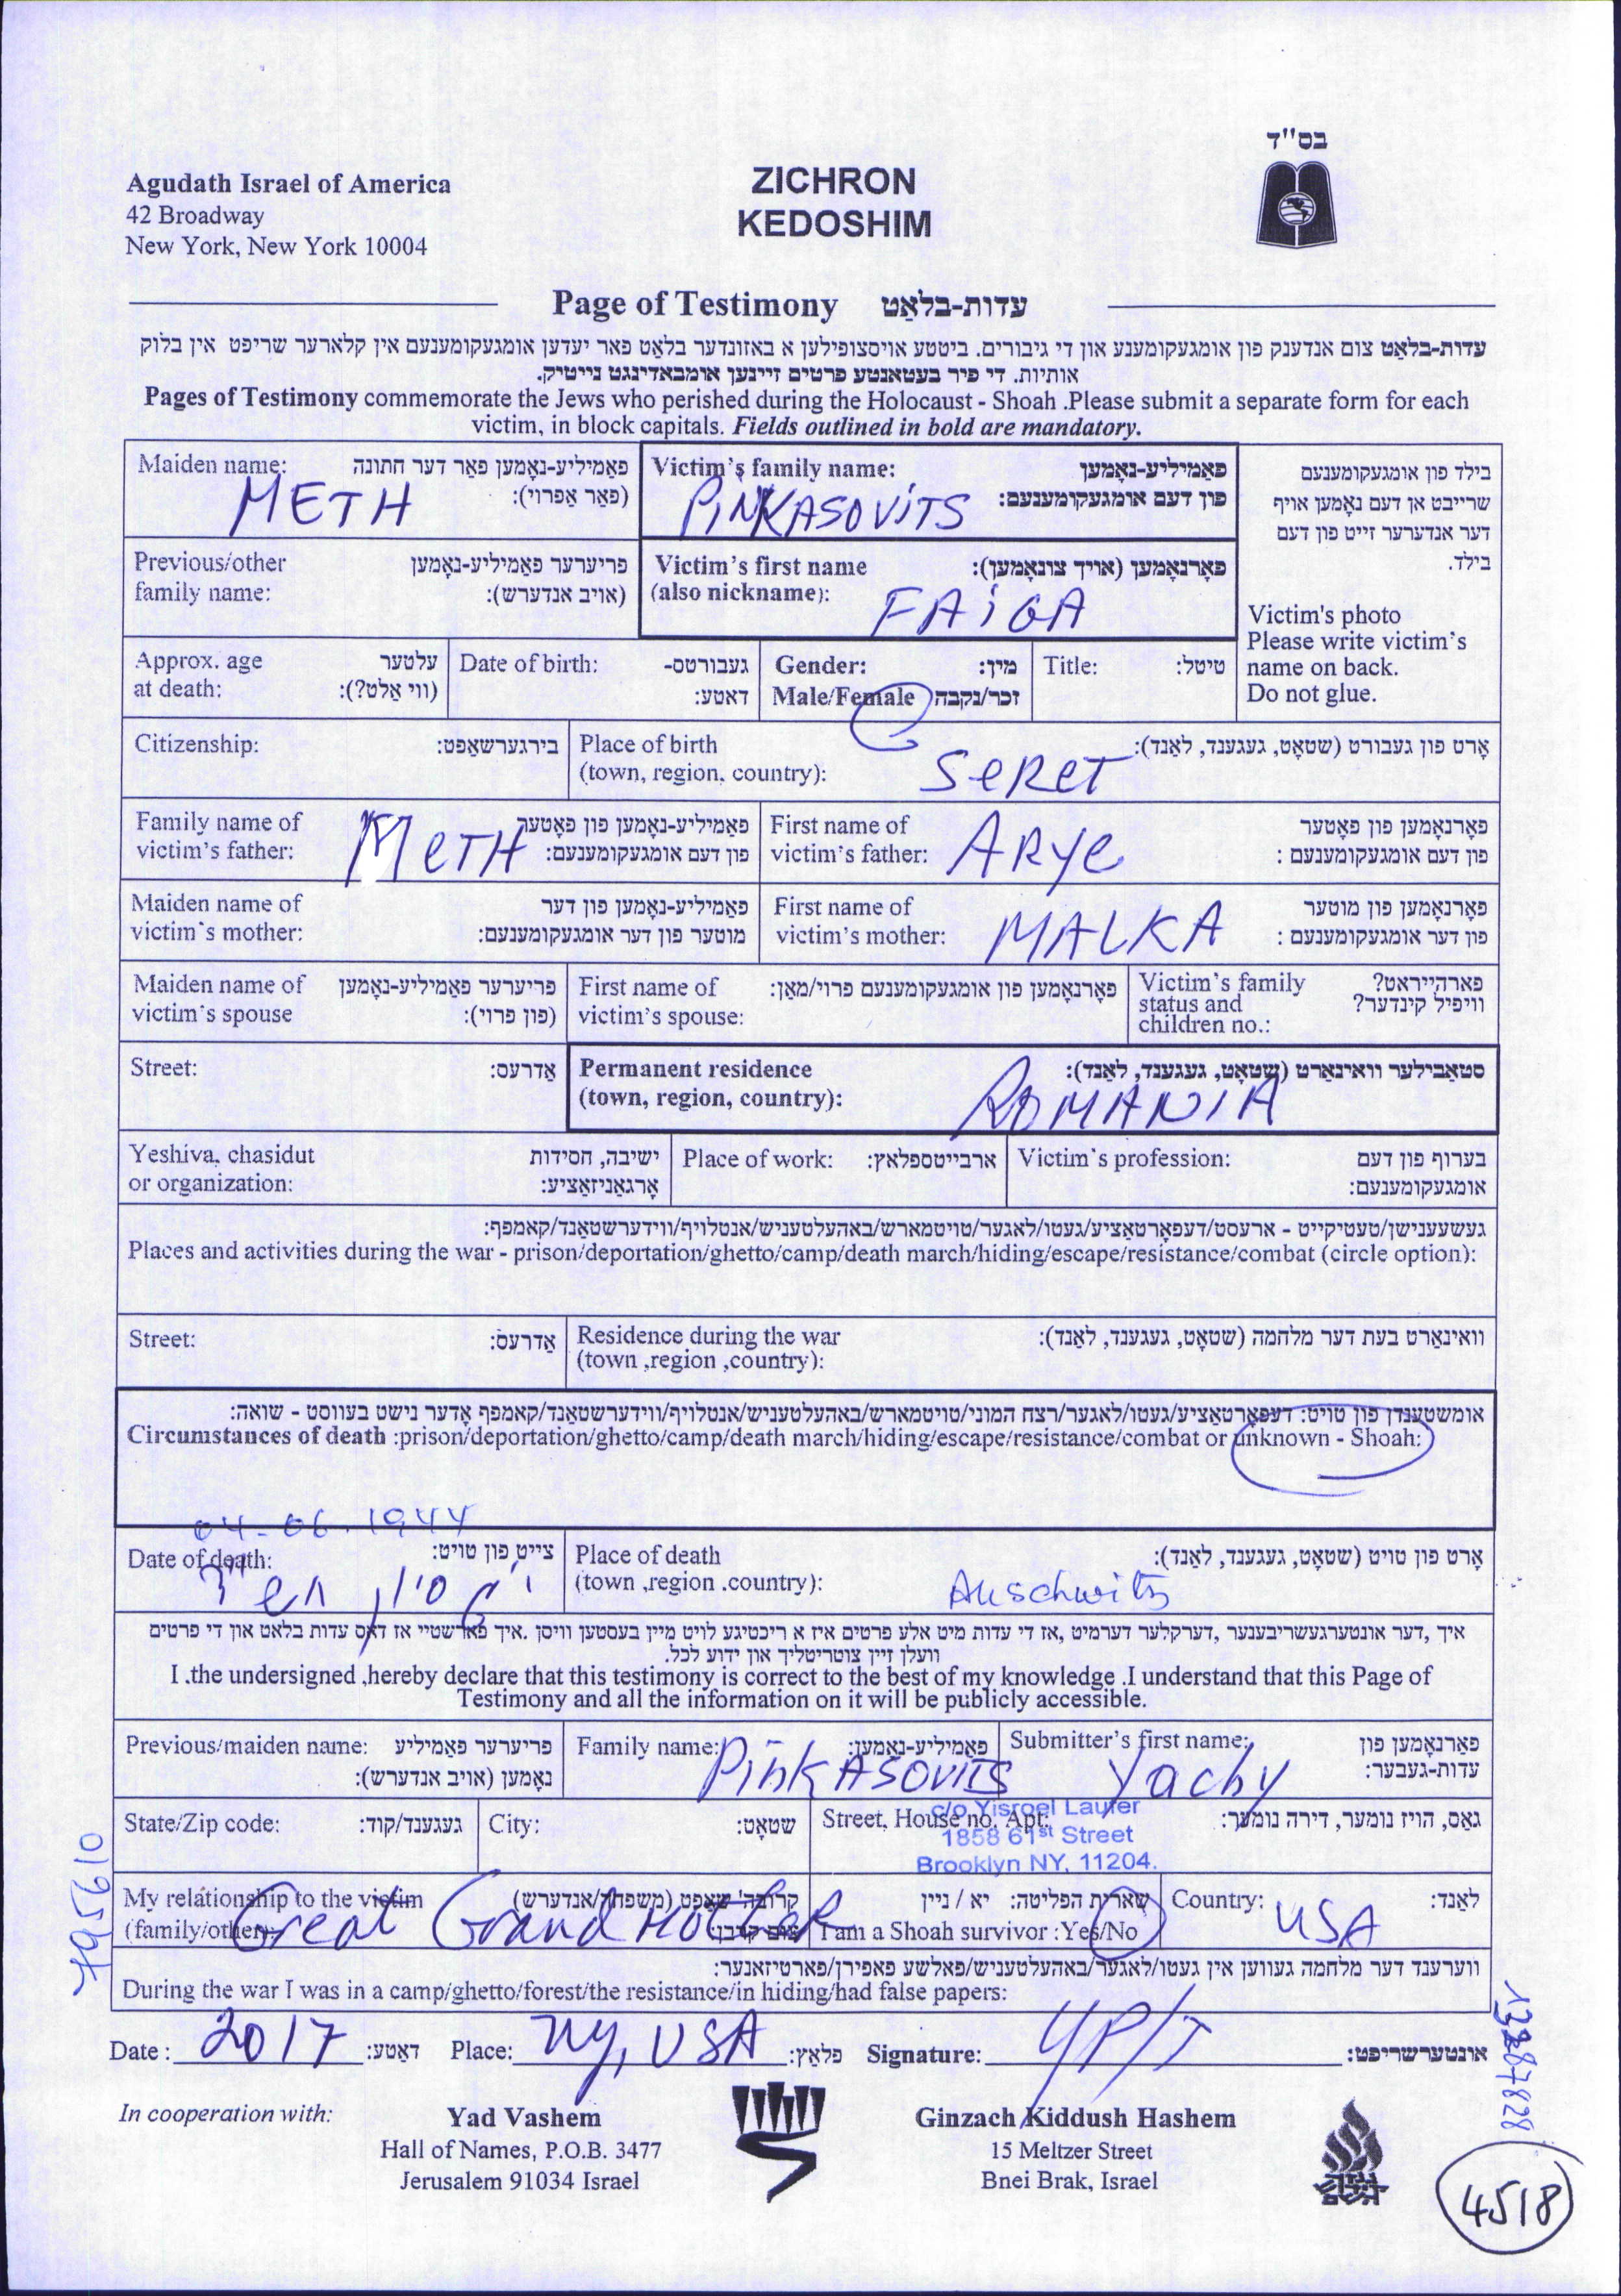 בס"ד
Agudath Israel of America
42 Broadway
New York, New York 10004
ZICHRON
KEDOSHIM
Page of Testimony עדות-בלאַט
עדות-בלאַט צום אנדענק פון אומגעקומענע און די גיבורים. ביטטע אויסצופילען א באזונדער בלאַט פאר יעדען אומגעקומענעם אין קלארער שריפט אין בלוק
אותיות. די פיר בעטאנטע פרטים זיינען אומבאדינגט נייטיק.
Pages of Testimony commemorate the Jews who perished during the Holocaust - Shoah .Please submit a separate form for each
victim, in block capitals. Fields outlined in bold are mandatory.
Maiden name: פאַמיליע-נאָמען פאַר דער חתונה
(פאַר אַפרוי):
METH
Victim's family name: פאַמיליע-נאָמען
פון דעם אומגעקומענעם:
PINKASOVITS
בילד פון אומגעקומענעם
שרייבט אן דעם נאָמען אויף
דער אנדערער זייט פון דעם
בילד.
Victim's photo
Please write victim's
name on back.
Do not glue.
Previous/other פריערער פאַמיליע-נאָמען
family name: (אויב אנדערש):
Victim's first name פאָרנאָמען (אויך צונאָמען):
(also nickname):
FAIGA
Approx. age עלטער
at death: (ווי אַלט?):
Date of birth: געבורטס-
דאטע:
Gender: מין:
Male/Female זכר/נקבה
Title: טיטל:
Citizenship: בירגערשאַפט:
Place of birth אָרט פון געבורט (שטאָט, געגענד, לאַנד):
(town, region, country):
SERET
Family name of פאַמיליע-נאָמען פון פאָטער
victim's father: פון דעם אומגעקומענעם:
METH
First name of פאָרנאָמען פון פאָטער
victim's father: פון דעם אומגעקומענעם :
ARYE
Maiden name of פאַמיליע-נאָמען פון דער
victim's mother: מוטער פון דער אומגעקומענעם:
First name of פאָרנאָמען פון מוטער
victim's mother: פון דער אומגעקומענעם :
MALKA
Maiden name of פריערער פאַמיליע-נאָמען
victim's spouse (פון פרוי):
First name of פאָרנאָמען פון אומגעקומענעם פרוי/מאַן:
victim's spouse:
Victim's family פארהייראט?
status and וויפיל קינדער?
children no.:
Street: אַדרעס:
Permanent residence סטאַבילער וואוינאָרט (שטאָט, געגענד, לאַנד):
(town, region, country):
ROMANIA
Yeshiva, chasidut ישיבה, חסידות
or organization: אָרגאַניזאַציע:
Place of work: ארבייטספלאץ:
Victim's profession: בערוף פון דעם
אומגעקומענעם:
געשעענישן/טעטיקייט - ארעסט/דעפאָרטאַציע/געטו/לאגער/טויטמארש/באהעלטעניש/אנטלויף/ווידערשטאַנד/קאמפף:
Places and activities during the war - prison/deportation/ghetto/camp/death march/hiding/escape/resistance/combat (circle option):
Street: אַדרעס:
Residence during the war וואוינאָרט בעת דער מלחמה (שטאָט, געגענד, לאַנד):
(town ,region ,country):
אומשטענדן פון טויט: דעפאָרטאַציע/געטו/לאגער/רצח המוני/טויטמארש/באהעלטעניש/אנטלויף/ווידערשטאַנד/קאמפף אָדער נישט בעוואוסט - שואה:
Circumstances of death :prison/deportation/ghetto/camp/death march/hiding/escape/resistance/combat or unknown - Shoah:
04-06.1944
Date of death: צייט פון טויט:
סיון
Place of death אָרט פון טויט (שטאָט, געגענד, לאַנד):
(town ,region .country):
Auschwitz
איך ,דער אונטערגעשריבענער ,דערקלער דערמיט ,אז די עדות מיט אלע פרטים איז א ריכטיגע לויט מיין בעסטען וויסן .איך פארשטיי אז דאס עדות בלאט און די פרטים
וועלן זיין צוטריטליך און ידוע לכל.
I .the undersigned ,hereby declare that this testimony is correct to the best of my knowledge .I understand that this Page of
Testimony and all the information on it will be publicly accessible.
Previous/maiden name: פריערער פאַמיליע
נאָמען (אויב אנדערש):
Family name: פאַמיליע-נאָמען:
PinkASOVITS
Submitter's first name: פאַרנאָמען פון
עדות-געבער:
Yachy
State/Zip code: געגענד/קוד:
City: שטאָט:
Street, House no, Apt: גאַס, הויז נומער, דירה נומער:
c/o Yisroel Laufer
1858 61st Street
Brooklyn NY, 11204.
My relationship to the victim קרובה'שאַפט (משפחה/אנדערש)
(family/other): צום קרבן:
Great Grand Mother
שארית הפליטה: יא / ניין
I am a Shoah survivor :Yes/No
Country: לאַנד:
USA
ווערענד דער מלחמה געווען אין געטו/לאגער/באהעלטעניש/פאלשע פאפירן/פארטיזאנער:
During the war I was in a camp/ghetto/forest/the resistance/in hiding/had false papers:
Date : 2017 דאַטע: Place: NY, USA פלאַץ: Signature: YP/T אונטערשריפט:
In cooperation with:
Yad Vashem
Hall of Names, P.O.B. 3477
Jerusalem 91034 Israel
Ginzach Kiddush Hashem
15 Meltzer Street
Bnei Brak, Israel
4518
795610